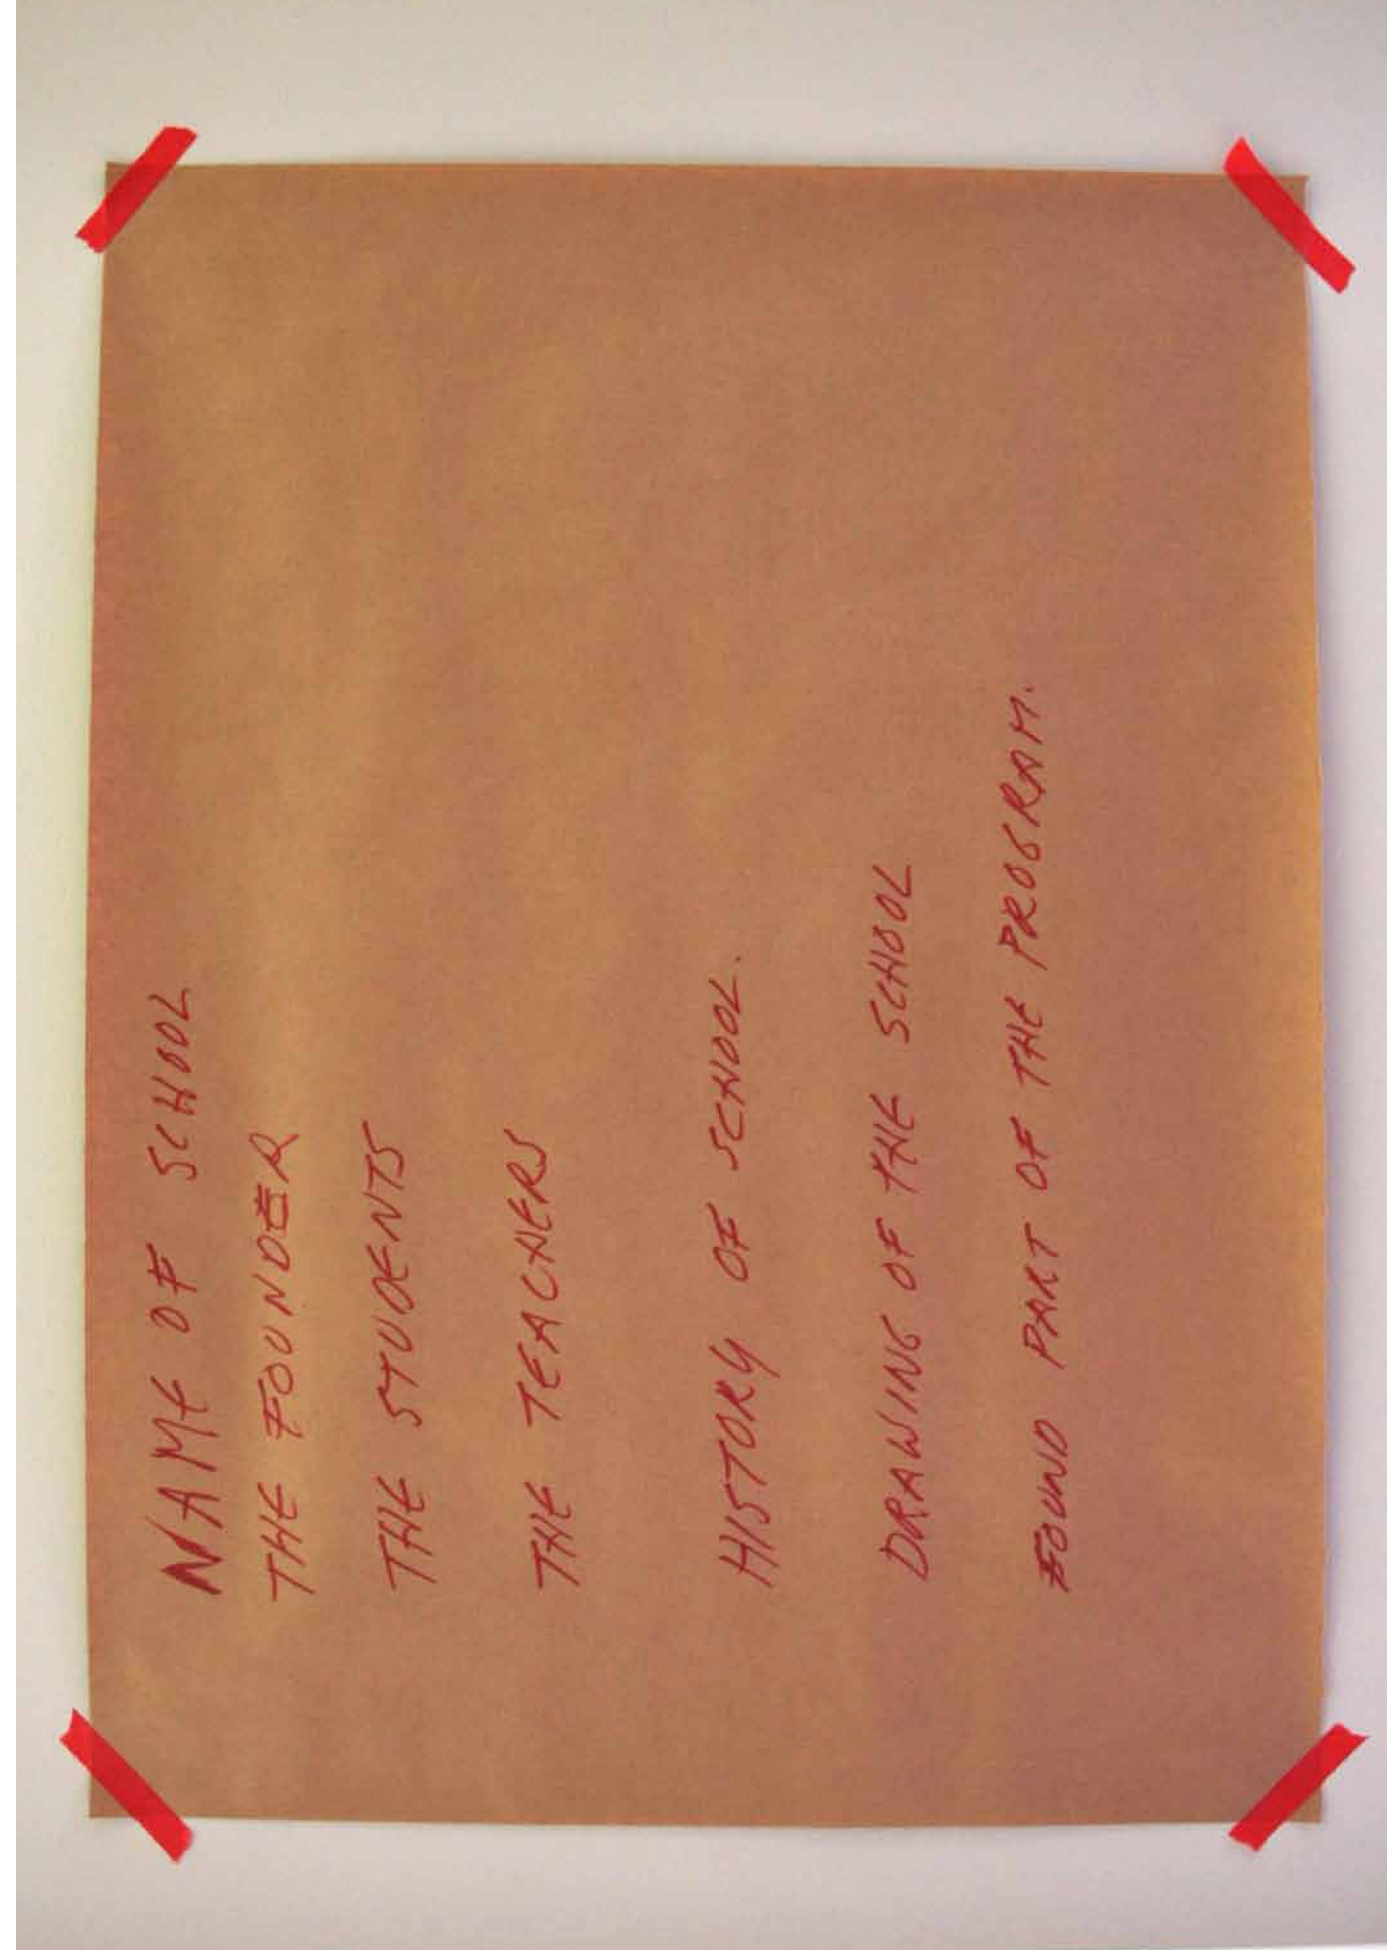 NAME OF SCHOOL
THE FOUNDER
THE STUDENTS
THE TEACHERS
HISTORY OF SCHOOL.
DRAWING OF THE SCHOOL
FOUND PART OF THE PROGRAM.